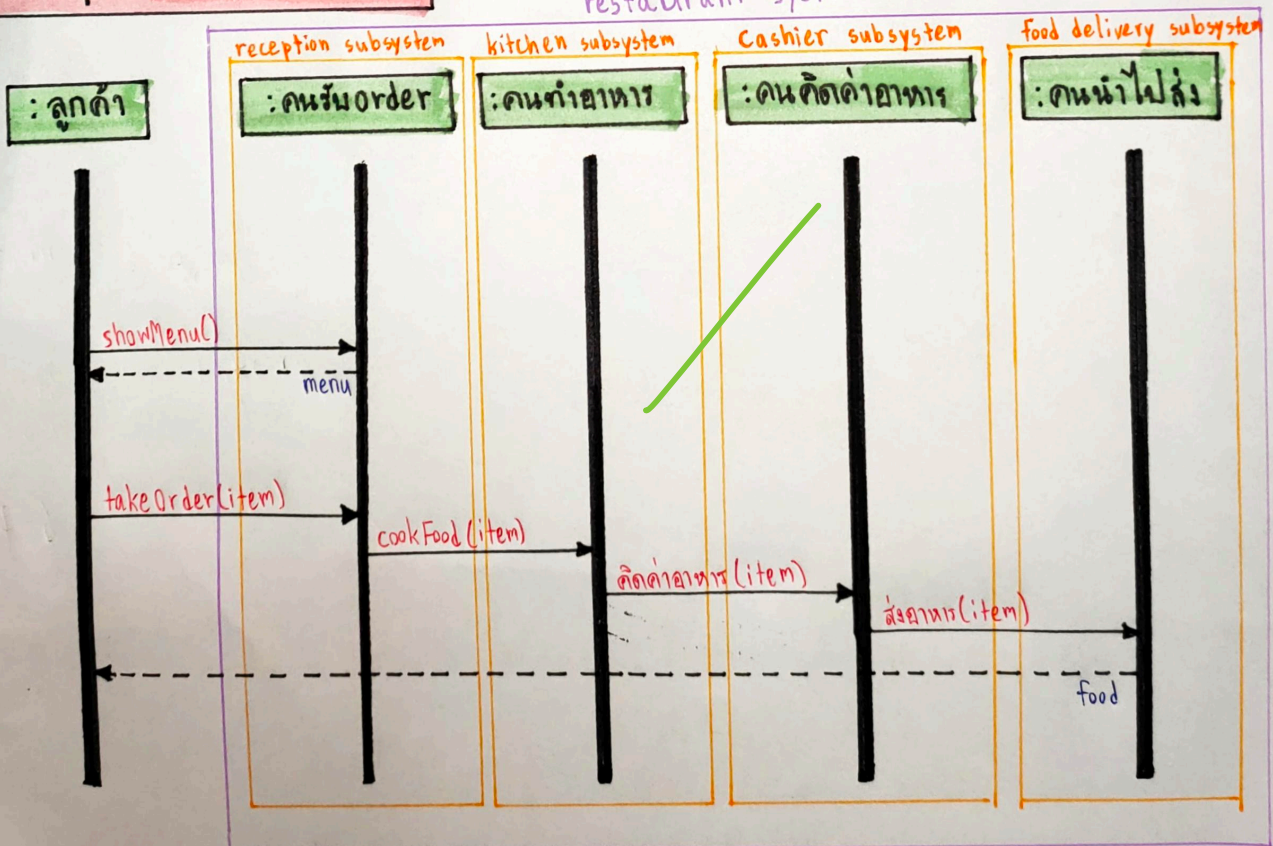 restaurant
reception subsystem
kitchen subsystem
Cashier subsystem
food delivery subsystem
:ลูกค้า
:คนรับorder
:คนทำอาหาร
:คนคิดค่าอาหาร
:คนนำไปส่ง
showMenu()
menu
takeOrder(item)
cookFood(item)
คิดค่าอาหาร(item)
ส่งอาหาร(item)
food